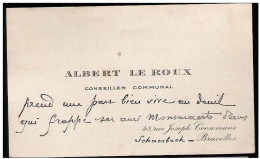 ALBERT LE ROUX
CONSEILLER COMMUNAL
prend une part bien vive au deuil
qui frappe son ami Monsieur
58, rue Joseph Coosemans
Schaerbeek - Bruxelles